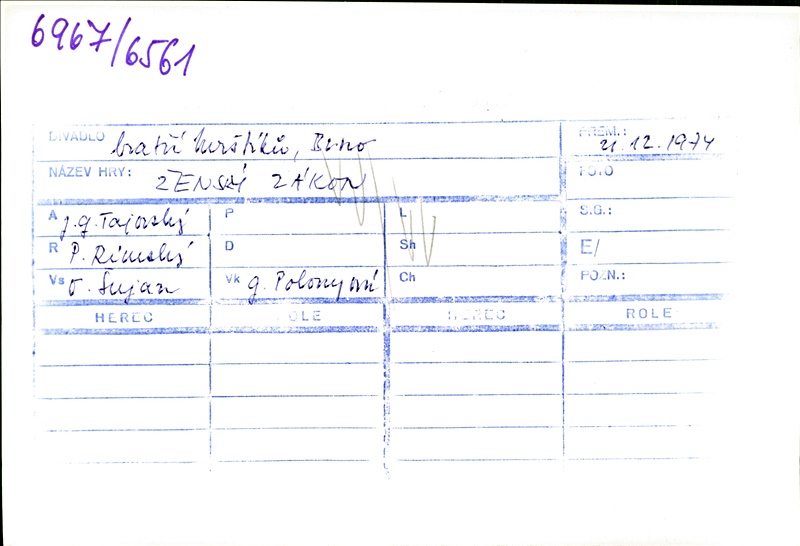 6967/6561
DIVADLO bratří Mrštíků, Brno PREM.: 21.12.1974
NÁZEV HRY: ŽENSKÝ ZÁKON FOTO
A J.G. Tajovský P L S.G.:
R P. Rímský D Sh E/
Vs O. Šujan Vk G. Polonyová Ch POZN.:
HEREC ROLE HEREC ROLE